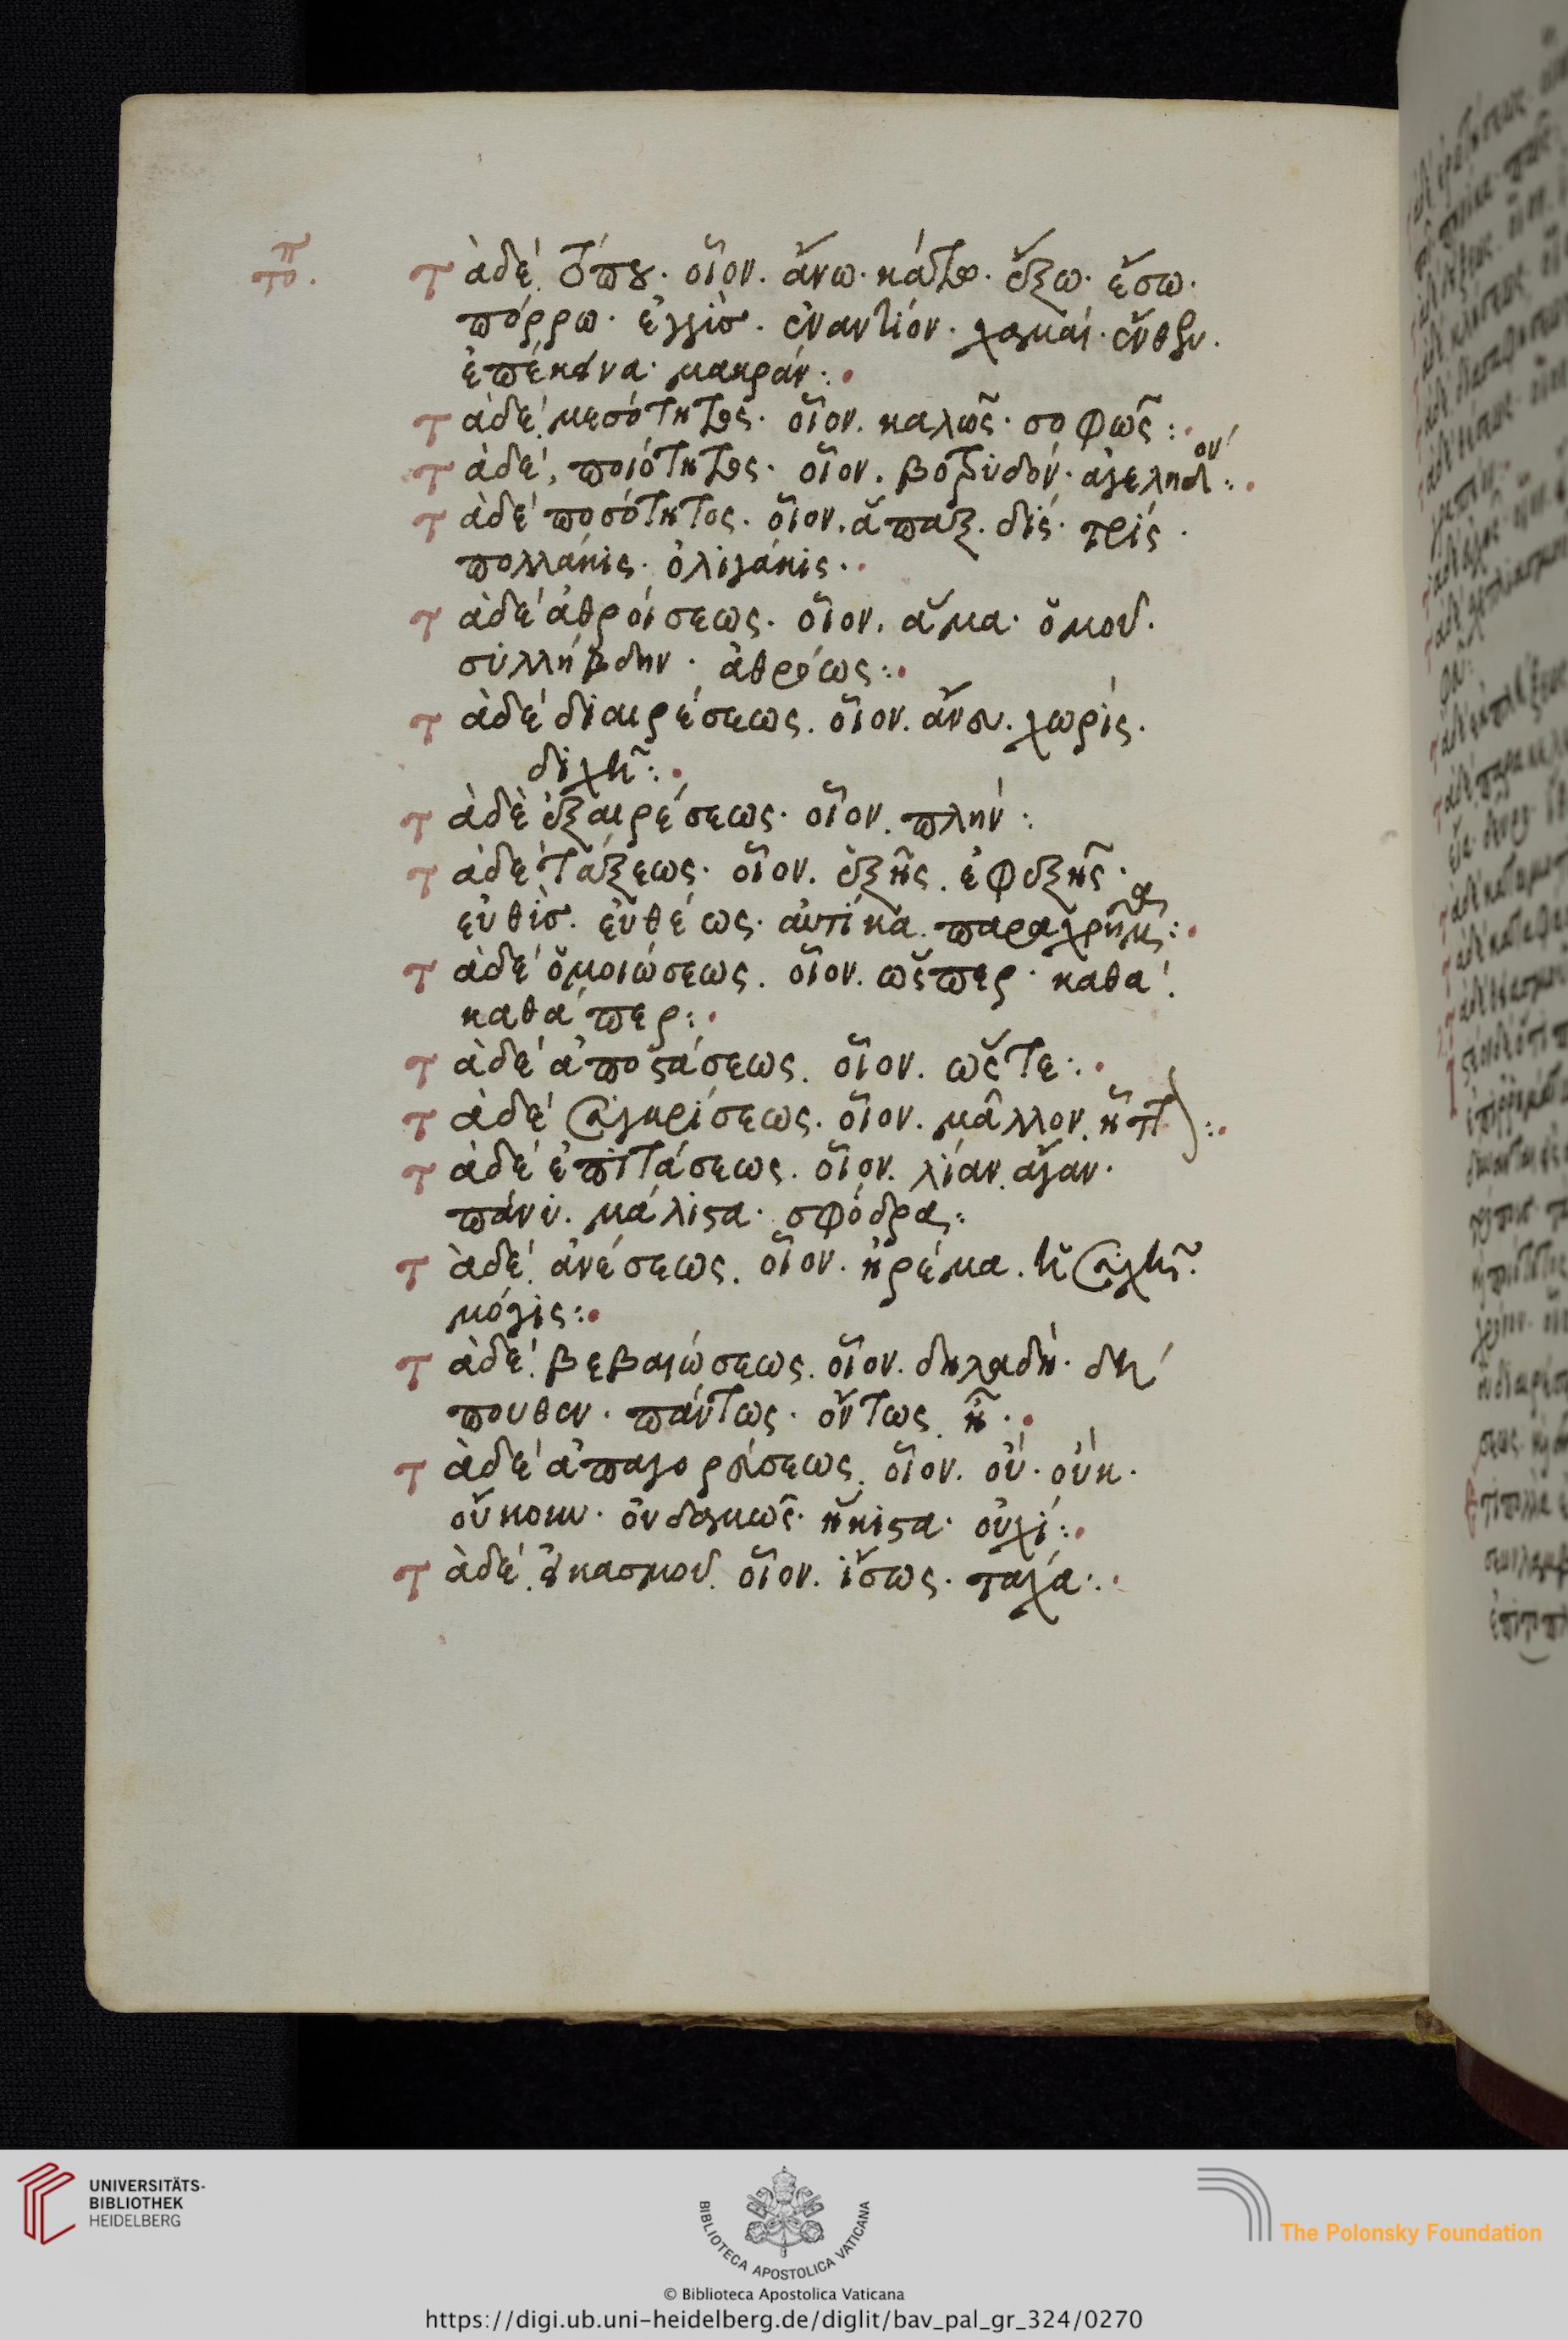 π
το.
τὰ δέ τόπου. οἷον. ἄνω. κάτω. ἔξω. ἔσω.
πόρρω. ἐγγὺς. ἐναντίον. χαμαί. ἔνθεν.
ἐπέκεινα. μακράν:.
τὰ δέ μεσότητος. οἷον. καλῶς. σοφῶς:.
τὰ δέ, ποιότητος. οἷον. βοτρυδόν. ἀγεληδόν:.
τὰ δέ ποσότητος. οἷον. ἅπαξ. δίς. τρίς.
πολλάκις. ὀλιγάκις.
τὰ δέ ἀθροίσεως. οἷον. ἅμα. ὁμοῦ.
συλλήβδην. ἀθρόως:.
τὰ δέ διαιρέσεως. οἷον. ἄνευ. χωρίς.
διχῆ:.
τὰ δὲ ἐξαιρέσεως. οἷον. πλήν:.
τὰ δέ τάξεως. οἷον. ἑξῆς. ἐφεξῆς.
εὐθὺς. εὐθέως. αὐτίκα. παραχρῆμα:.
τὰ δέ ὁμοιώσεως. οἷον. ὥσπερ. καθά.
καθάπερ:.
τὰ δέ ἀποστάσεως. οἷον. ὥστε:.
τὰ δέ συγκρίσεως. οἷον. μᾶλλον. ἧττον:.
τὰ δέ ἐπιτάσεως. οἷον. λίαν. ἄγαν.
πάνυ. μάλιστα. σφόδρα:
τὰ δέ. ἀνέσεως. οἷον. ἠρέμα. ἡσυχῆ.
μόγις:.
τὰ δέ. βεβαιώσεως. οἷον. δηλαδή. δή
πουθεν. πάντως. ὄντως. ἦ.
τὰ δέ ἀπαγορεύσεως. οἷον. οὔ. οὐκ.
οὔκουν. οὐδαμῶς. ἥκιστα. οὐχί:.
τὰ δέ. εἰκασμοῦ. οἷον. ἴσως. ταχά:.
UNIVERSITÄTS-
BIBLIOTHEK
HEIDELBERG
BIBLIOTECA APOSTOLICA VATICANA
The Polonsky Foundation
© Biblioteca Apostolica Vaticana
https://digi.ub.uni-heidelberg.de/diglit/bav_pal_gr_324/0270